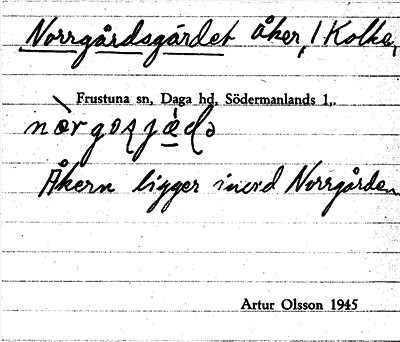 Norrgårdsgärdet åker, / Kolke,
Frustuna sn, Daga hd, Södermanlands l,.
Åkern ligger invid Norrgården
Artur Olsson 1945